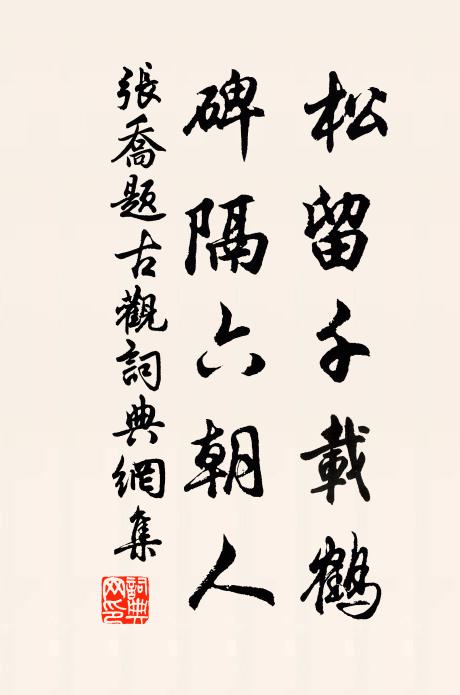 松留千載鶴
碑隔六朝人
張喬題古觀詞典網集
詞典網印